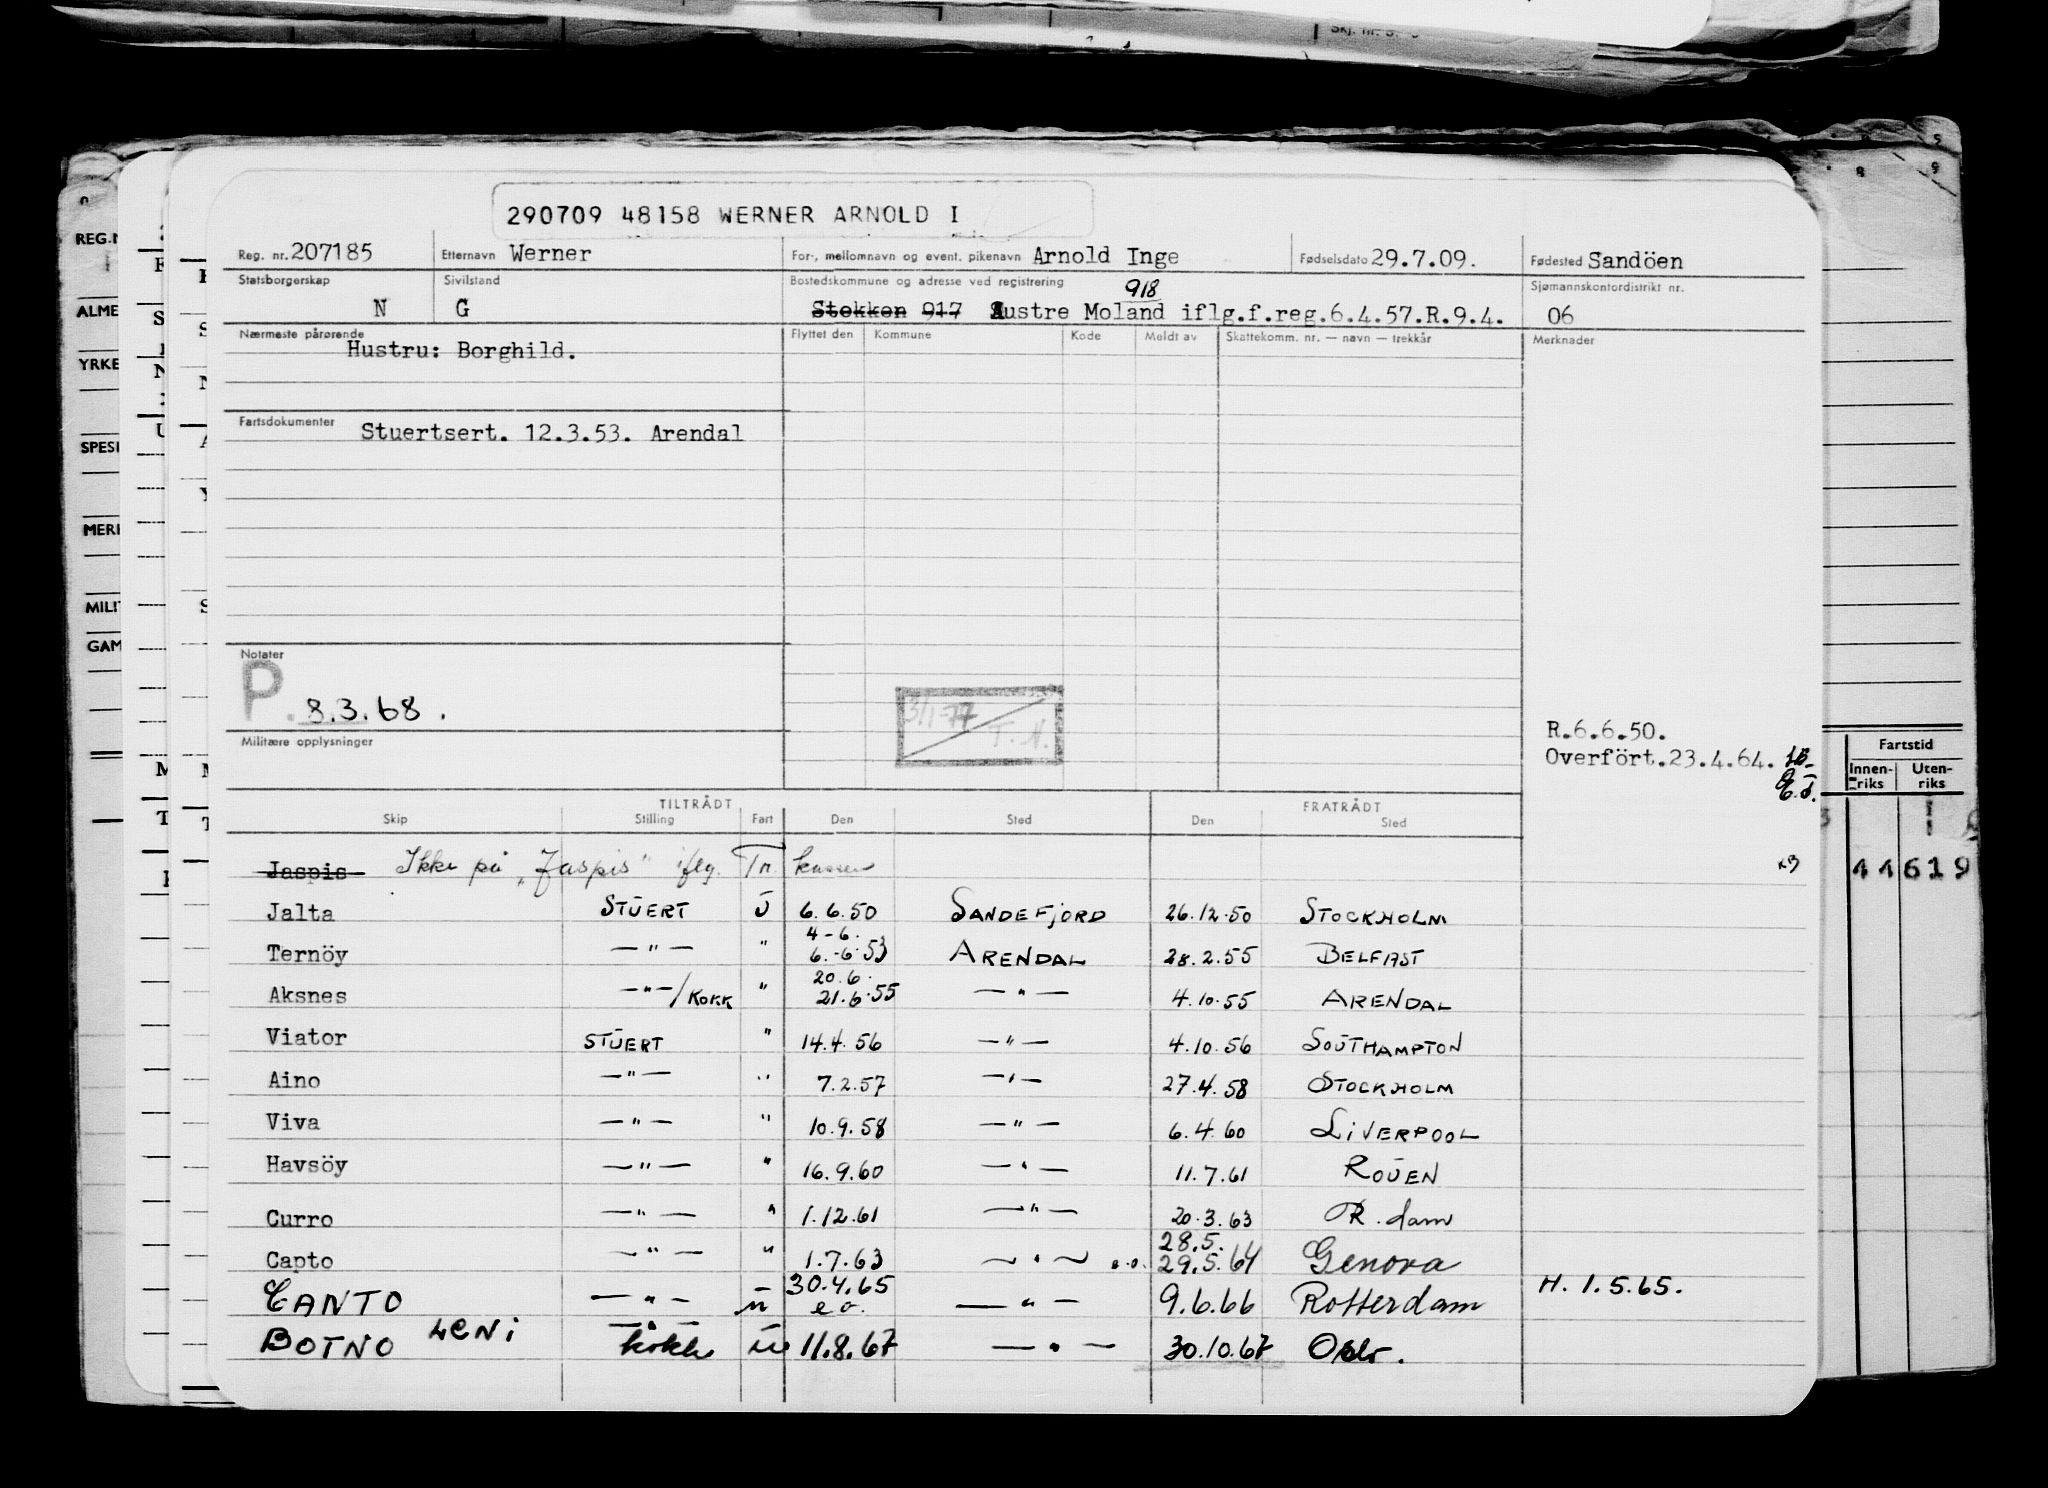 Skj. nr. 5
290709 48158 WERNER ARNOLD I
Reg. nr. 207185 Etternavn Werner For-, mellomnavn og event. pikenavn Arnold Inge Fødselsdato 29.7.09. Fødested Sandöen
Statsborgerskap N Sivilstand G Bostedskommune og adresse ved registrering Sjømannskontordistrikt nr. 06
918
Stokken 917 Austre Moland iflg.f.reg.6.4.57.R.9.4.
Nærmeste pårørende Hustru: Borghild.
Flyttet den Kommune Kode Meldt av Skattekomm. nr. — navn — trekkår Merknader
Fartsdokumenter Stuertsert. 12.3.53. Arendal
Notater
P. 8.3.68.
3/1-77 T. N.
Militære opplysninger
R.6.6.50.
Overført.23.4.64.
TILTRÅDT FRATRÅDT
Skip Stilling Fart Den Sted Den Sted
Jaspis Ikke på „Jaspis" iflg. Tr. kassen
Jalta STUERT U 6.6.50 SANDEFJORD 26.12.50 STOCKHOLM
Ternöy —"— " 4-6. 6.-6.53 ARENDAL 28.2.55 BELFAST
Aksnes —"—/KOKK " 20.6. 21.6.55 —"— 4.10.55 ARENDAL
Viator STUERT " 14.4.56 —"— 4.10.56 SOUTHAMPTON
Aino —"— " 7.2.57 —"— 27.4.58 STOCKHOLM
Viva —"— " 10.9.58 —"— 6.4.60 LIVERPOOL
Havsöy —"— " 16.9.60 —"— 11.7.61 ROUEN
Curro —"— " 1.12.61 —"— 20.3.63 R.dam
Capto —"— " 1.7.63 —"— 28.5. 29.5.64 Genova
CANTO —"— u 30.4.65 —"— 9.6.66 Rotterdam H. 1.5.65.
BOTNO LENI —"— kokk u 11.8.67 —"— 30.10.67 Oslo.
REG.N
ALME
YRKE
SPESI
MERI
MILIT
GAM
Fartstid
Innen-riks Uten-riks